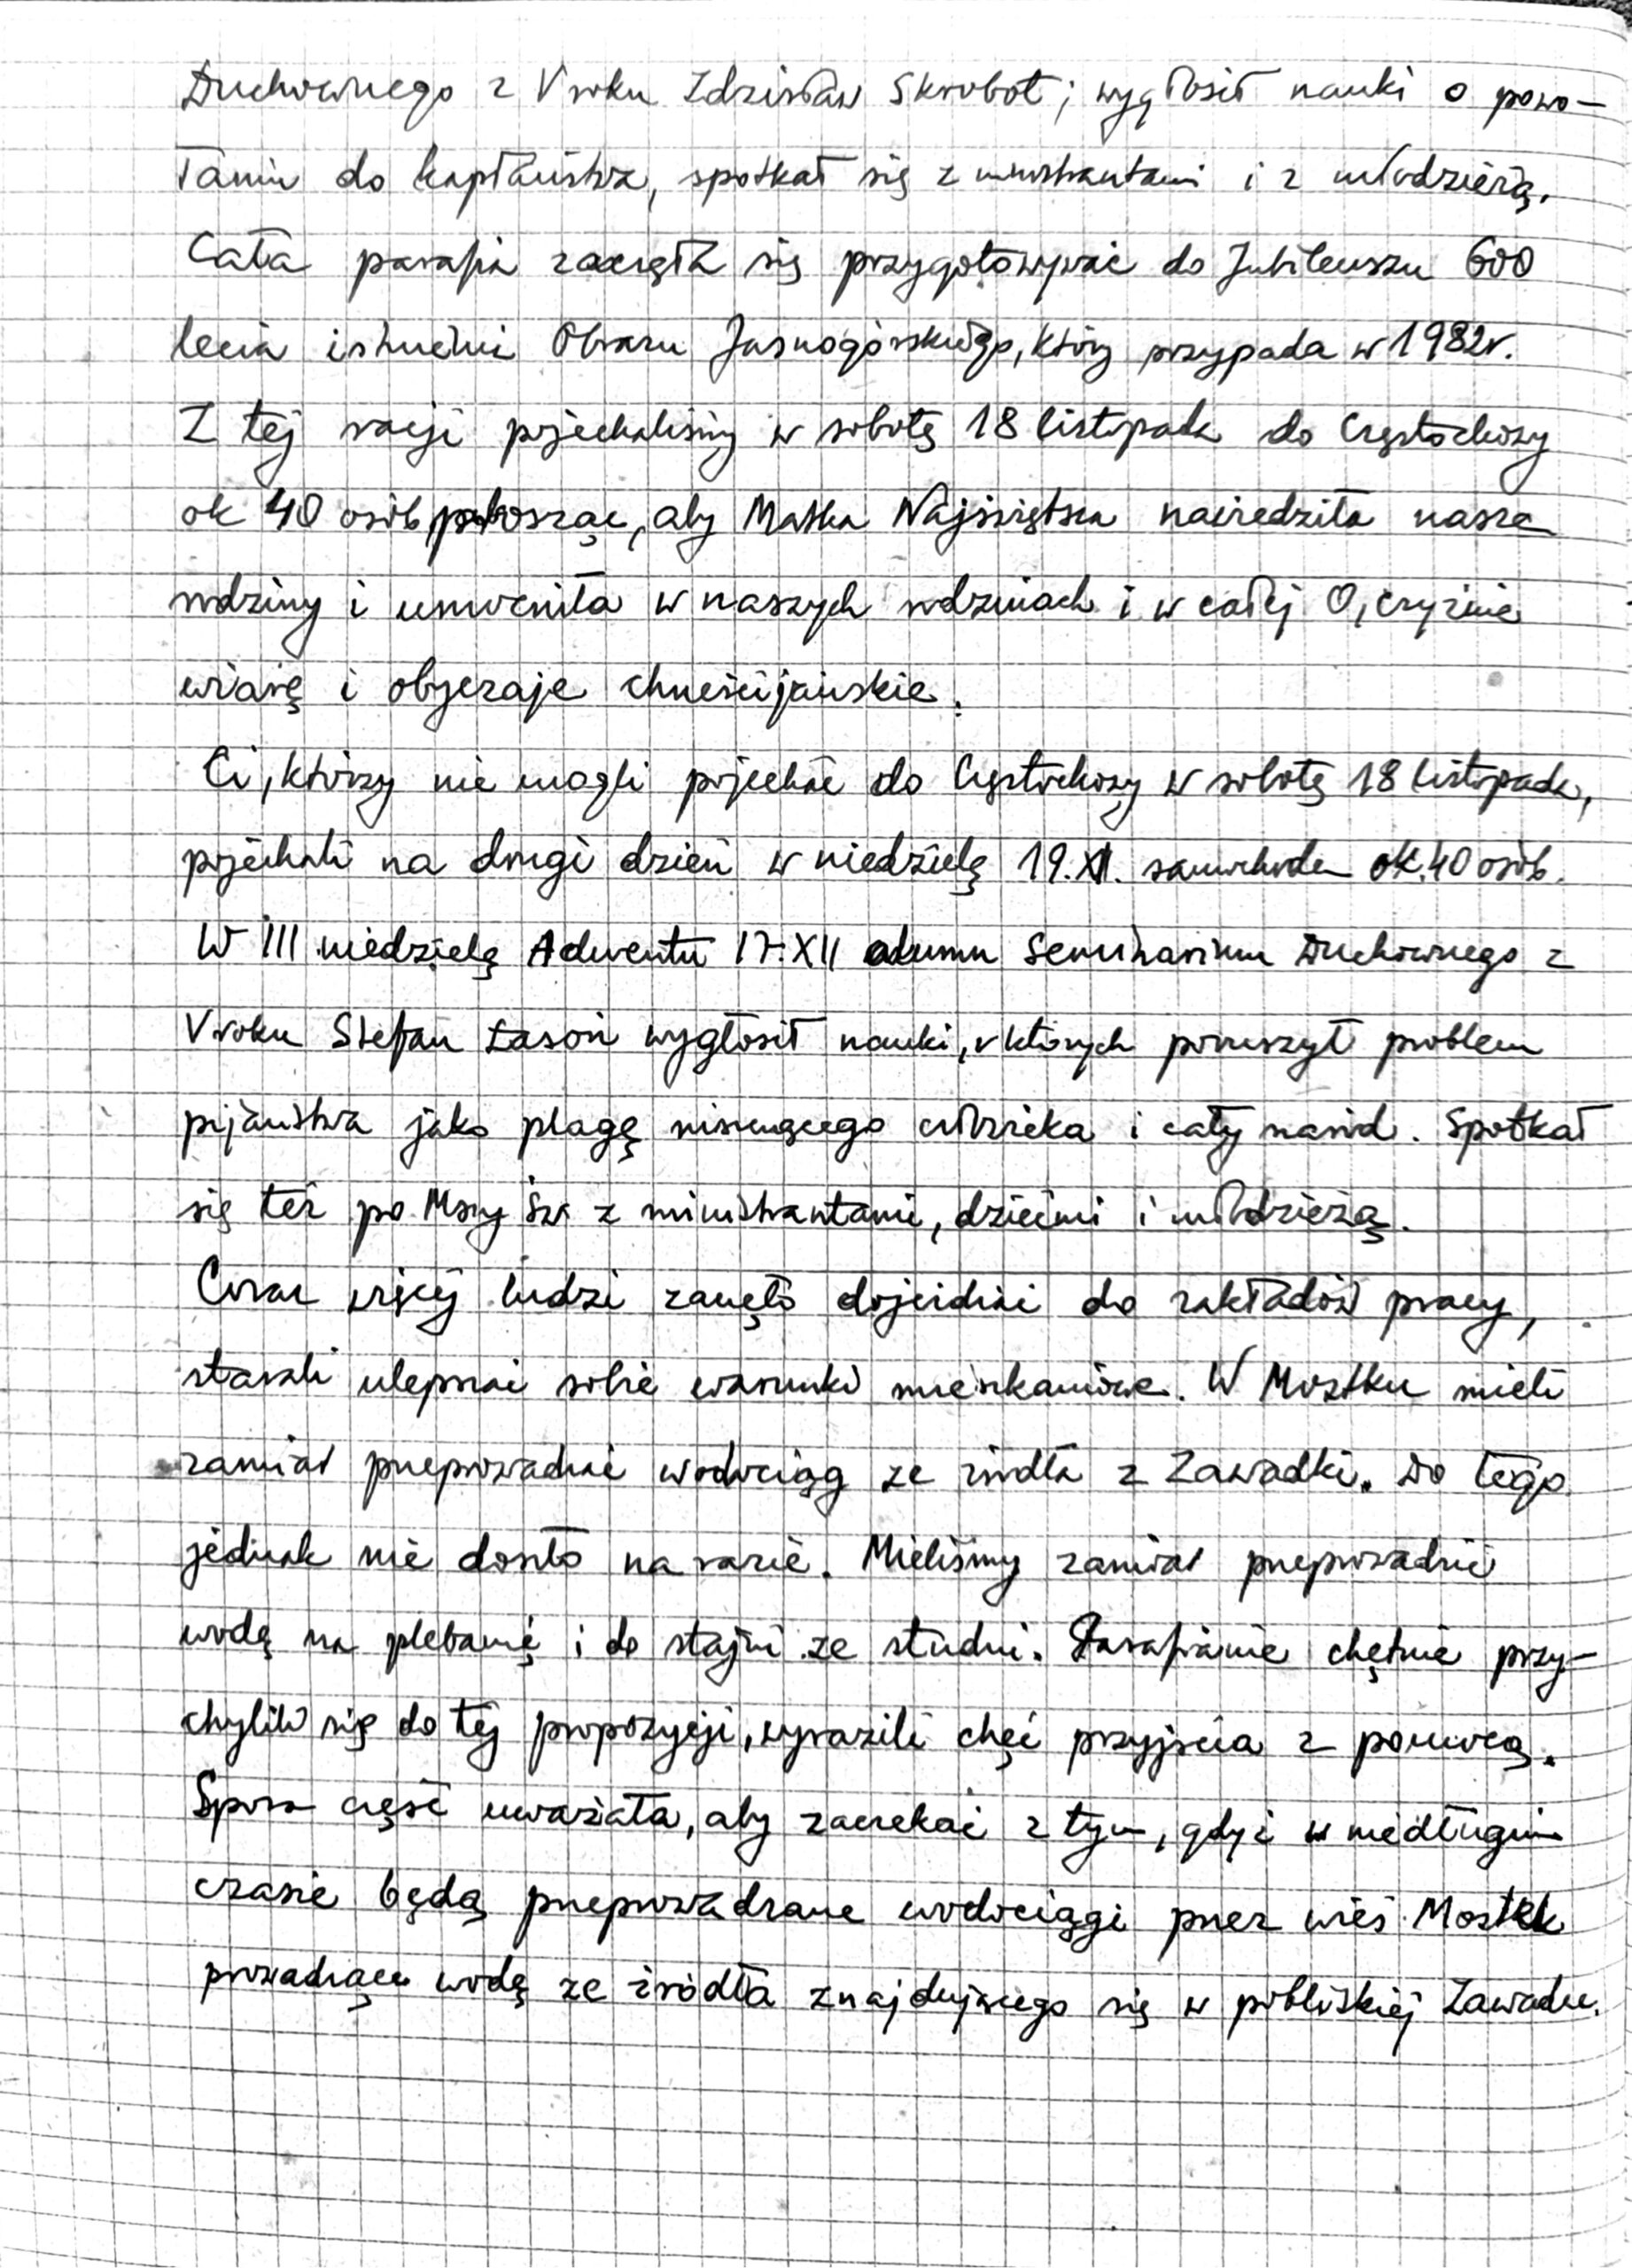 Duchownego z V roku Zdzisław Skrobot; wygłosił nauki o powo-
łaniu do kapłaństwa, spotkał się z ministrantami i z młodzieżą.
Cała parafia zaczęła się przygotowywać do Jubileuszu 600
lecia istnienia Obrazu Jasnogórskiego, który przypada w 1982r.
Z tej racji pojechaliśmy w sobotę 18 listopada do Częstochowy
ok 40 osób prosząc, aby Matka Najświętsza nawiedziła nasze
rodziny i umocniła w naszych rodzinach i w całej Ojczyźnie
wiarę i obyczaje chrześcijańskie.
Ci, którzy nie mogli pojechać do Częstochowy w sobotę 18 listopada,
pojechali na drugi dzień w niedzielę 19.XI. samochodem ok. 40 osób.
W III niedzielę Adwentu 17.XII alumn Seminarium Duchownego z
V roku Stefan Łasoń wygłosił nauki, w których poruszył problem
pijaństwa jako plagę niszczącego człowieka i cały naród. Spotkał
się też po Mszy św z ministrantami, dziećmi i młodzieżą.
Coraz więcej ludzi zaczęło dojeżdżać do zakładów pracy,
starali ulepszać sobie warunki mieszkaniowe. W Mostku mieli
zamiar przeprowadzić wodociąg ze źródła z Zawadki. Do tego
jednak nie doszło na razie. Mieliśmy zamiar przeprowadzić
wodę na plebanię i do stajni ze studni. Parafianie chętnie przy-
chylili się do tej propozycji, wyrazili chęć przyjścia z pomocą.
Spora część uważała, aby zaczekać z tym, gdyż w niedługim
czasie będą przeprowadzane wodociągi przez wieś Mostek
prowadzące wodę ze źródła znajdującego się w pobliskiej Zawadce.